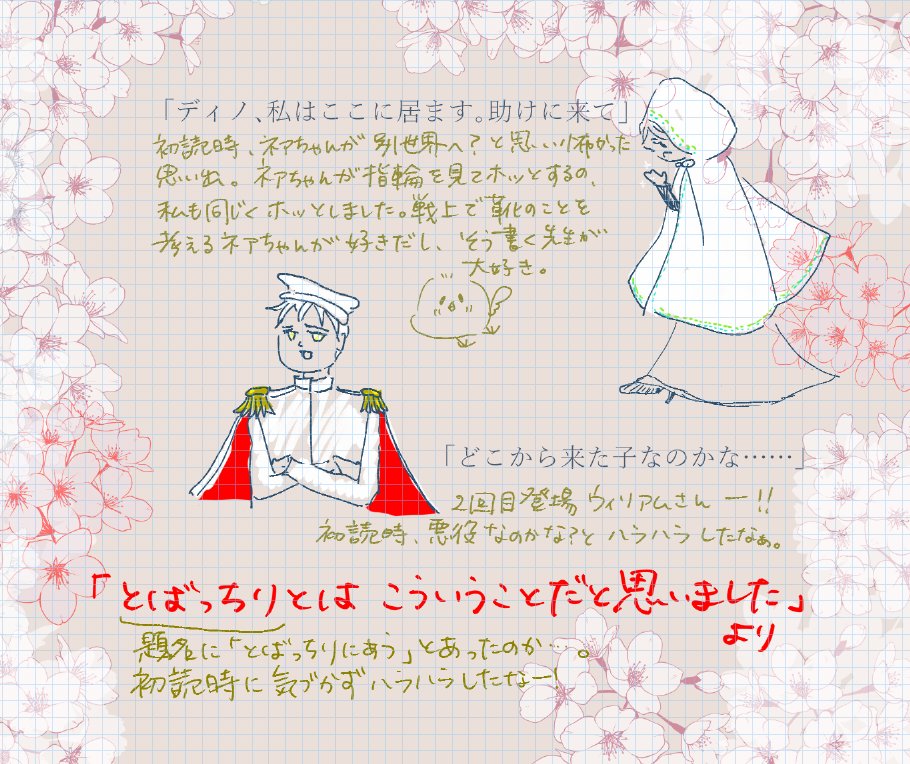 「ディノ、私はここに居ます。助けに来て」
初読時、ネアちゃんが別世界へ?と思い怖かった
思い出。ネアちゃんが指輪を見てホッとするの、
私も同じくホッとしました。戦上で靴のことを
考えるネアちゃんが好きだし、そう書く先生が
大好き。
「どこから来た子なのかな……」
2回目登場ウィリアムさんー!!
初読時、悪役なのかな?とハラハラしたなぁ。
「とばっちりとは こういうことだと思いました」
より
題名に「とばっちりにあう」とあったのか…。
初読時に気づかずハラハラしたなー!